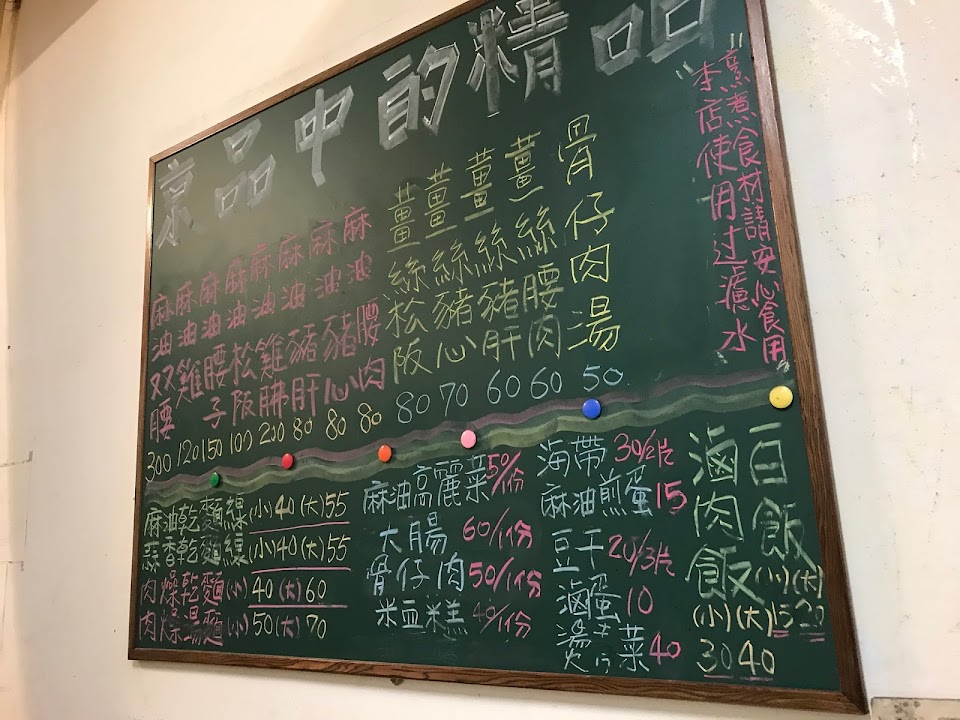 京品中的精品
"本店使用过濾水
烹煮食材請安心食用"
骨仔肉湯 50
薑絲腰肉 60
薑絲豬肝 60
薑絲豬心 70
薑絲松阪 80
麻油腰肉 80
麻油豬心 80
麻油豬肝 80
麻油雞胇 200
麻油松阪 100
麻油腰子 150
麻油雞 120
麻油双腰 300
麻油乾麵線(小)40(大)55
蒜香乾麵線(小)40(大)55
肉燥乾麵(小)40(大)60
肉燥湯麵(小)50(大)70
麻油高麗菜50/份
大腸 60/1份
骨仔肉50/1份
米血糕40/1份
海帶30/2片
麻油煎蛋15
豆干20/3片
滷蛋10
燙青菜40
百飯(小)(大)
15 20
滷肉飯(小)(大)
30 40